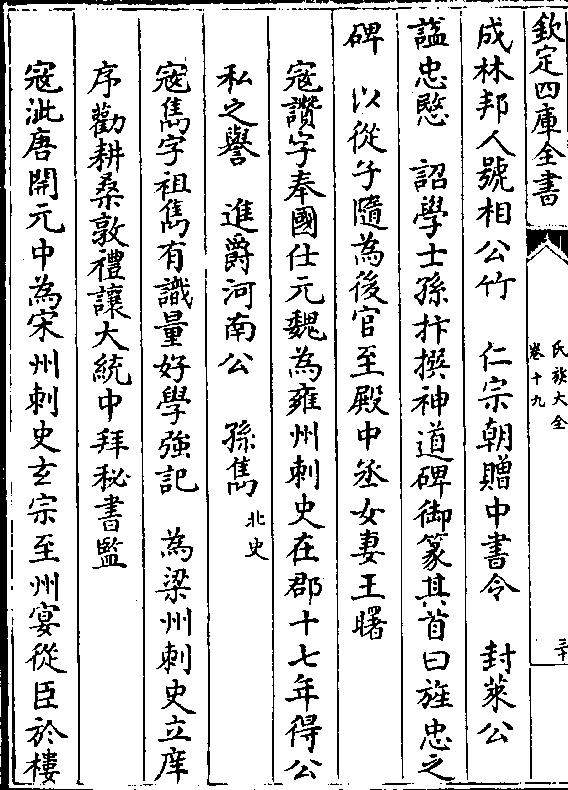 欽定四庫全書
氏族大全
卷十九
二十
成林邦人號相公竹　仁宗朝贈中書令　封萊公
諡忠愍　詔學士孫抃撰神道碑御篆其首曰旌忠之
碑　以從子隨為後官至殿中丞女妻王曙
寇讚字奉國仕元魏為雍州刺史在郡十七年得公
私之譽　進爵河南公　孫雋北史
寇雋字祖雋有識量好學強記　為梁州刺史立庠
序勸耕桑敦禮讓大統中拜秘書監
寇泚唐開元中為宋州刺史玄宗至州宴從臣於樓